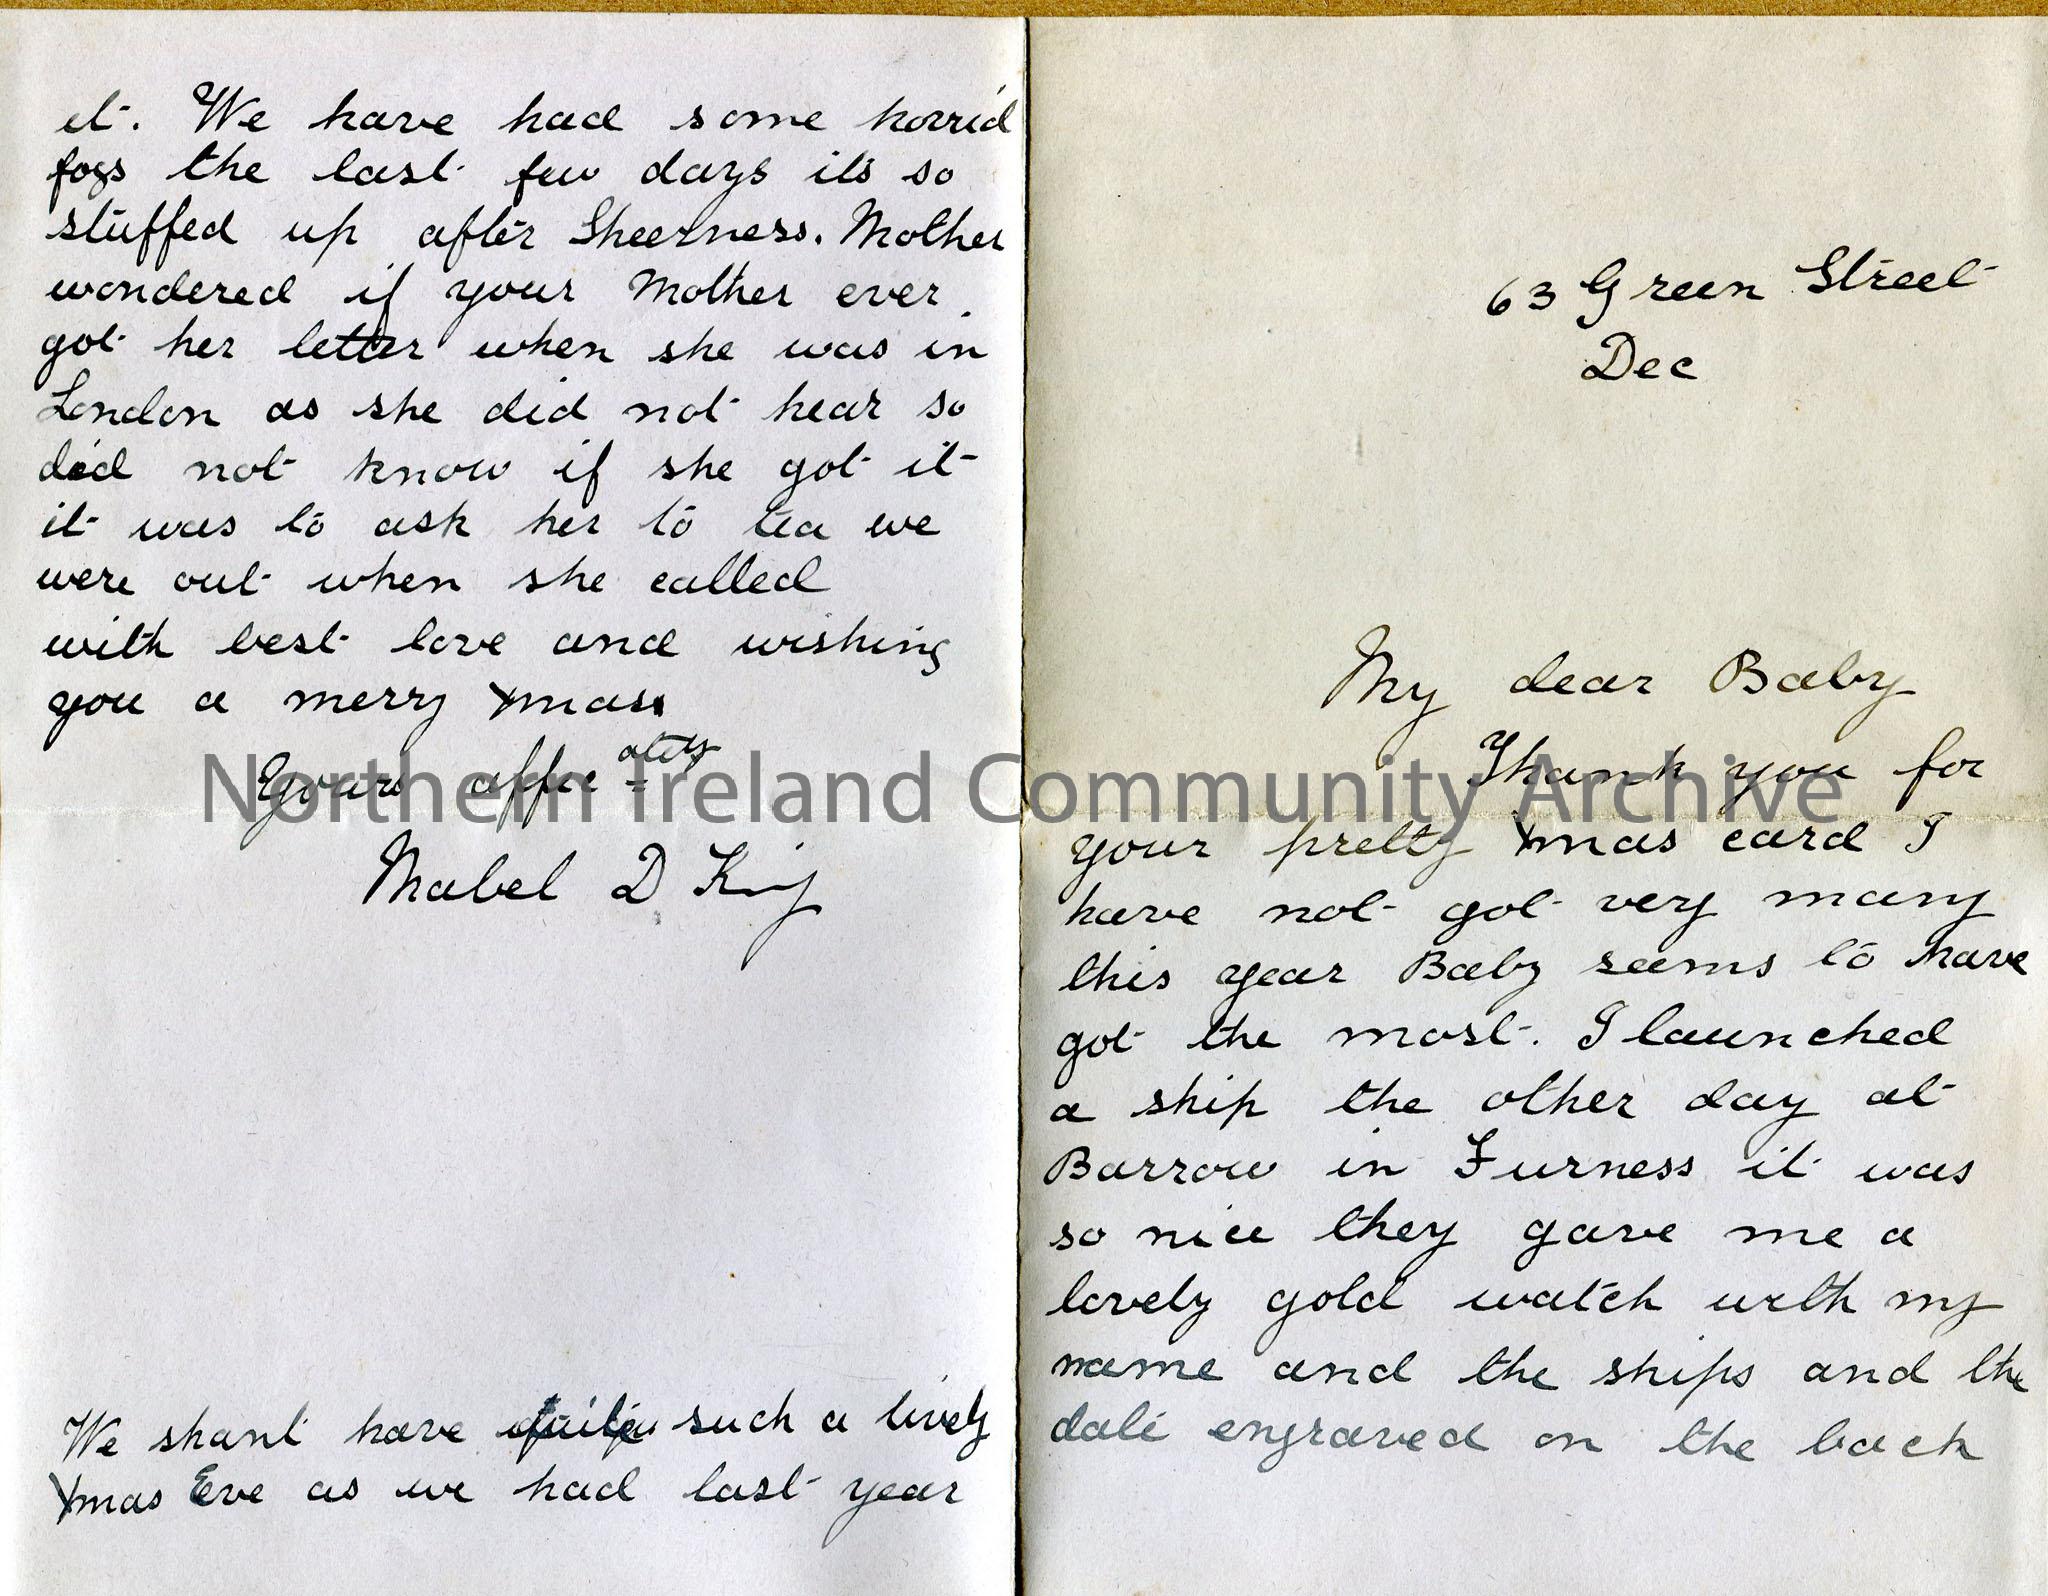 63 Green Street
Dec
My dear Baby
Thank you for
your pretty Xmas card I
have not got very many
this year Baby seems to have
got the most. I launched
a ship the other day at
Barrow in Furness it was
so nice they gave me a
lovely gold watch with my
name and the ships and the
date engraved on the back
it. We have had some horrid
fogs the last few days its so
stuffed up after Sheerness. Mother
wondered if your Mother ever
got her letter when she was in
London as she did not hear so
did not know if she got it
it was to ask her to tea we
were out when she called
with best love and wishing
you a merry Xmas
Yours affecately
Mabel D King
We shant have such a lively
Xmas Eve as we had last year
Northern Ireland Community Archive